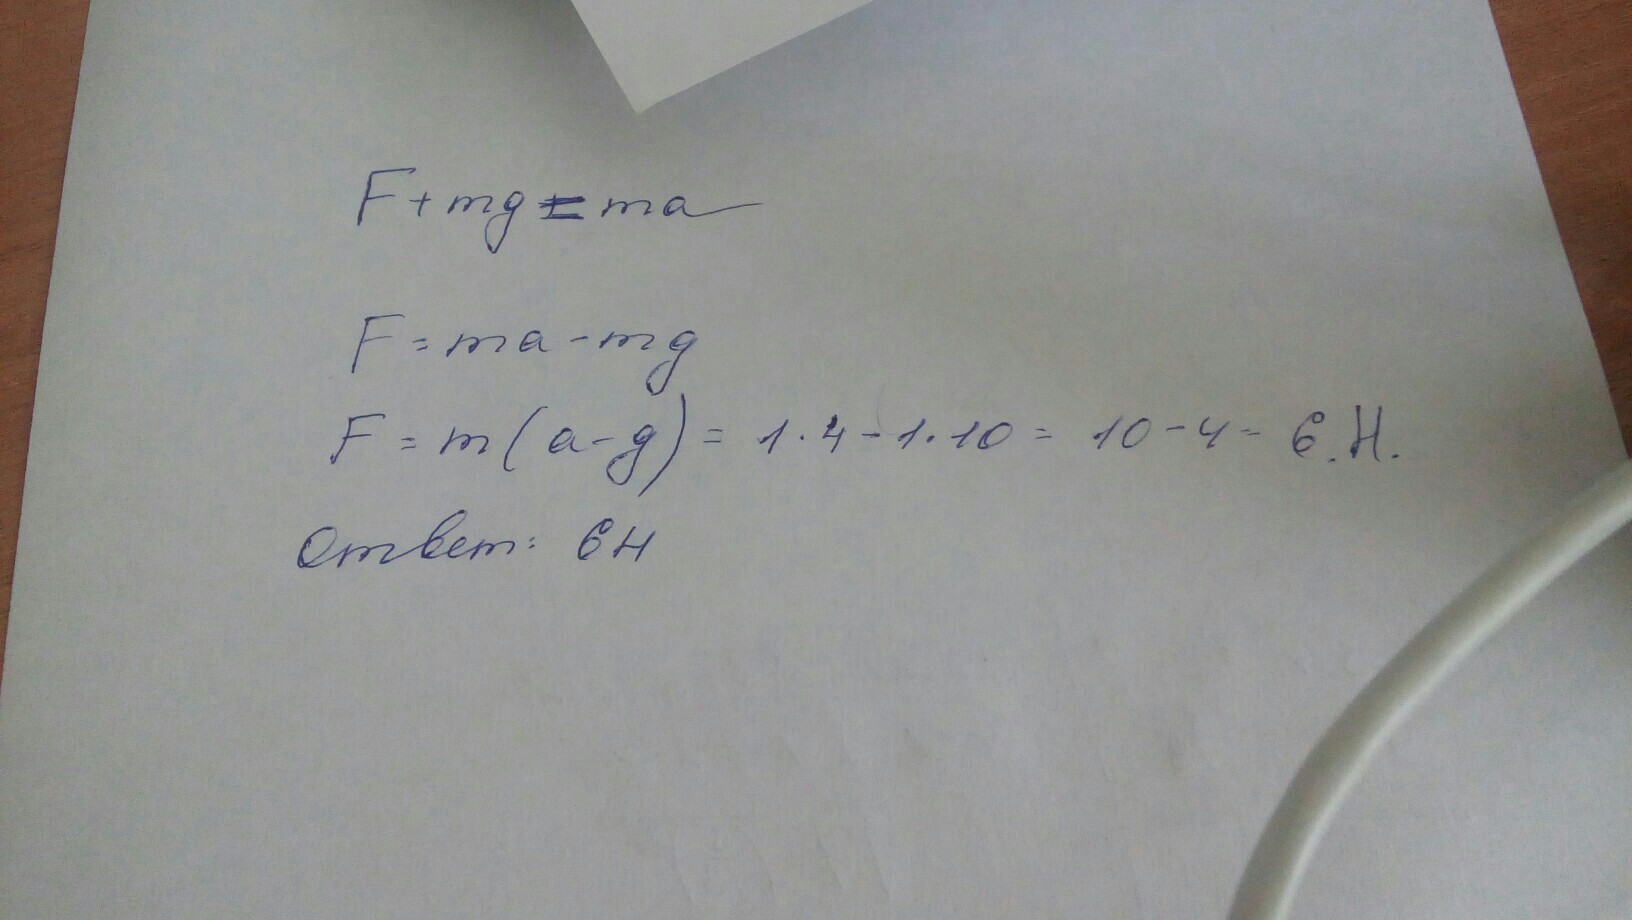 F + mg = ma
F = ma - mg
F = m(a - g) = 1 · 4 - 1 · 10 = 10 - 4 - 6.Н.
Ответ: 6Н